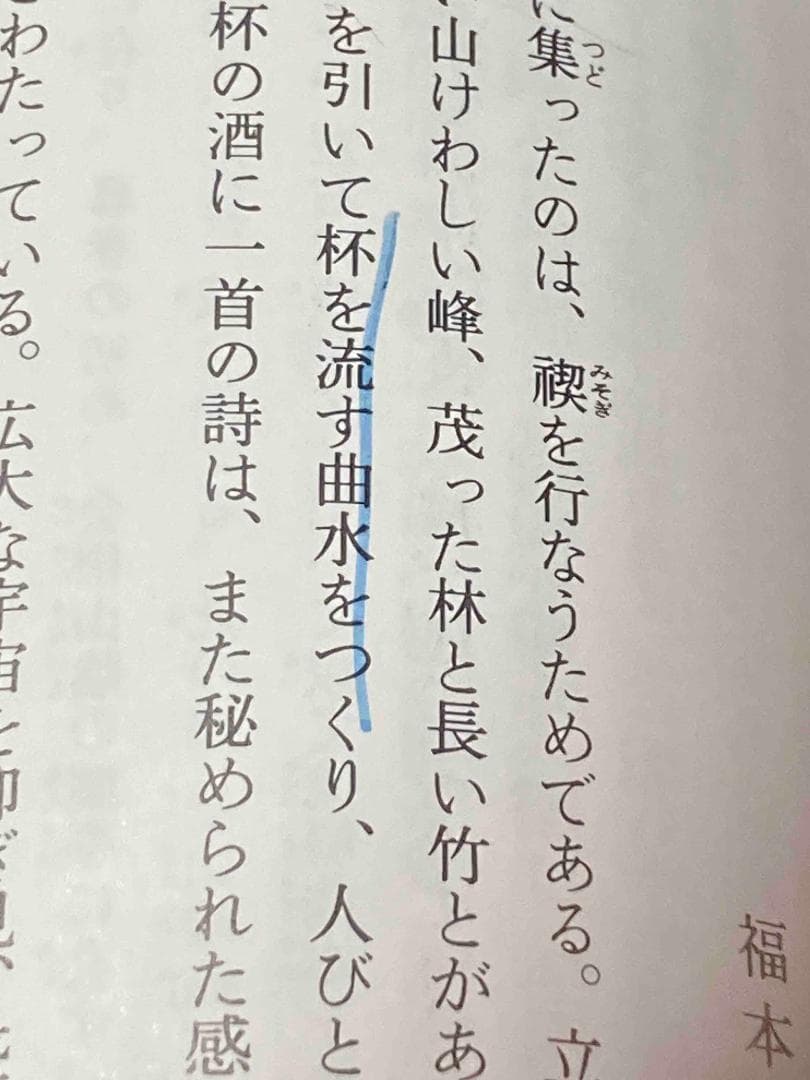 福本
に集ったのは、禊を行なうためである。立
つど
みそぎ
山けわしい峰、茂った林と長い竹とがあ
を引いて杯を流す曲水をつくり、人びと
杯の酒に一首の詩は、また秘められた感
わたっている。広大な宇宙を仰ぎ見、